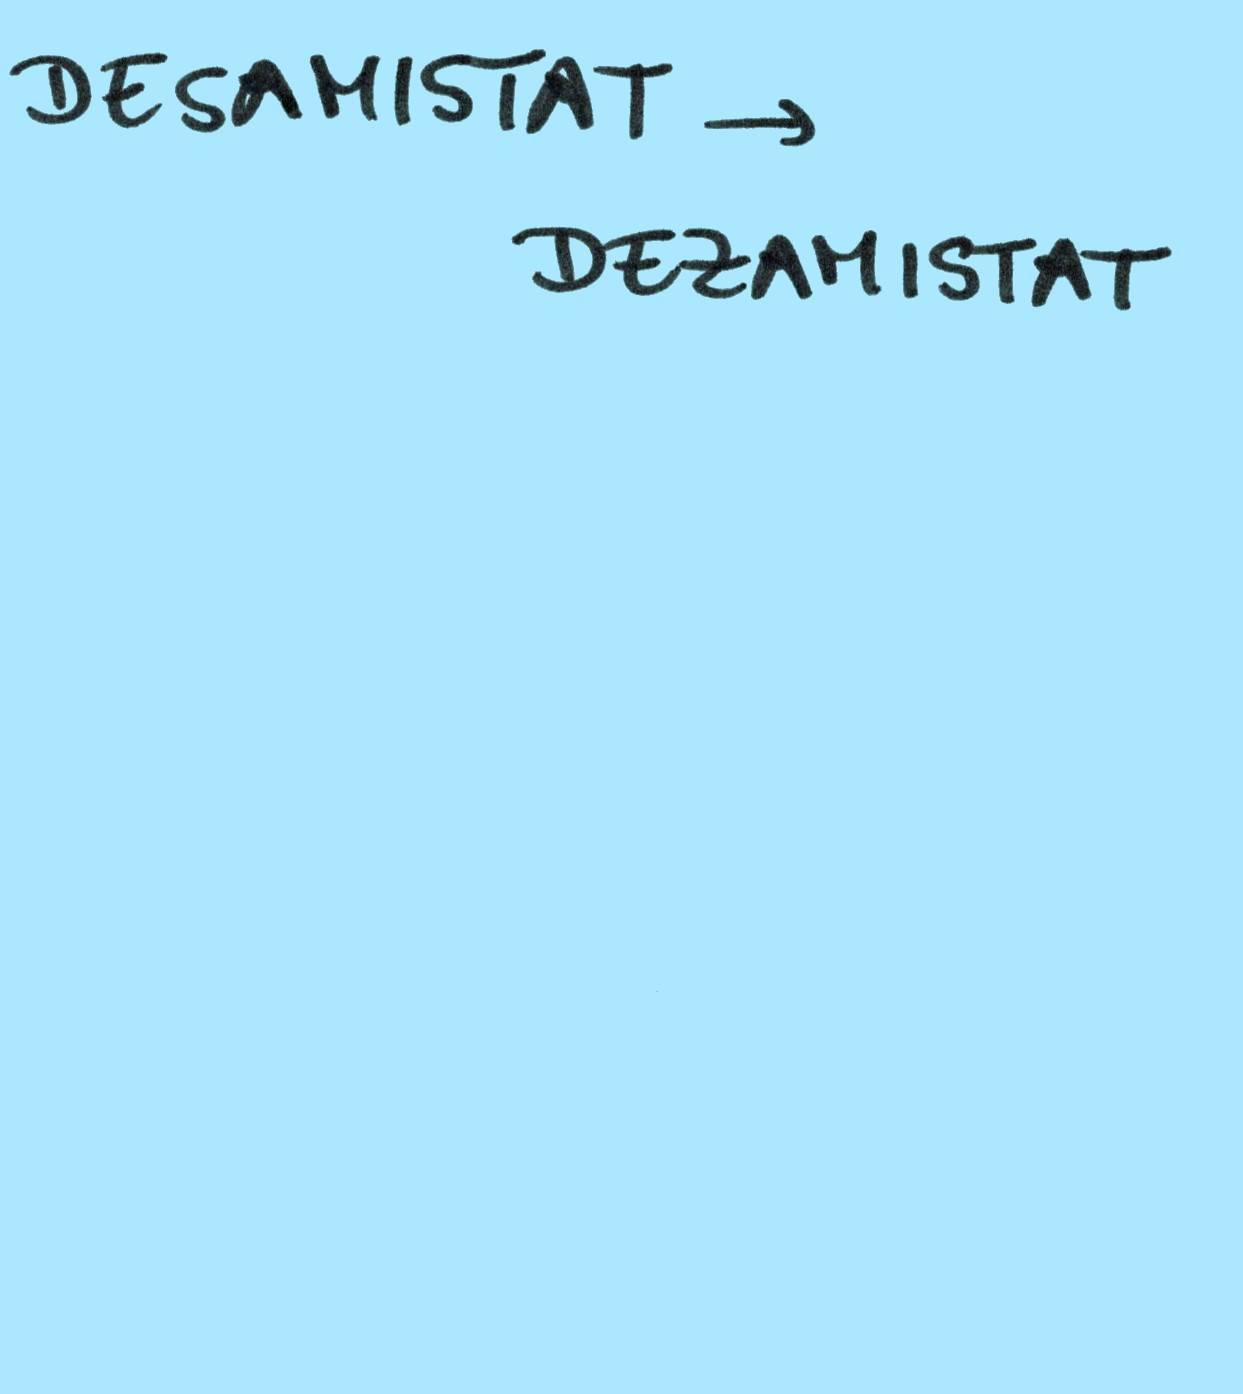 DESAMISTAT →
DEZAMISTAT